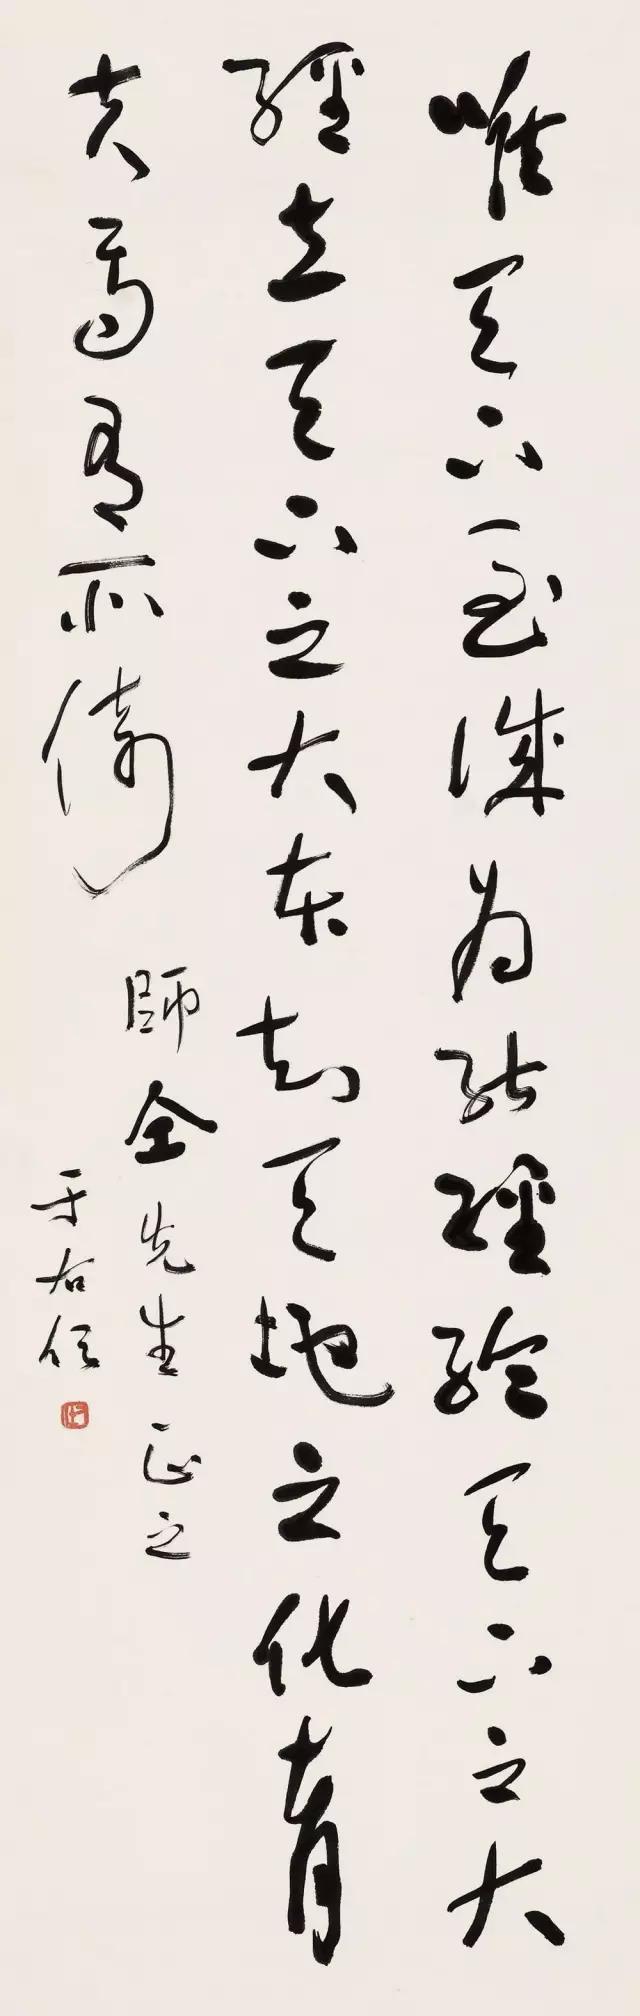 唯天下至誠為能經綸天下之大
經立天下之大本知天地之化育
夫焉有所倚
師全先生正之
于右任